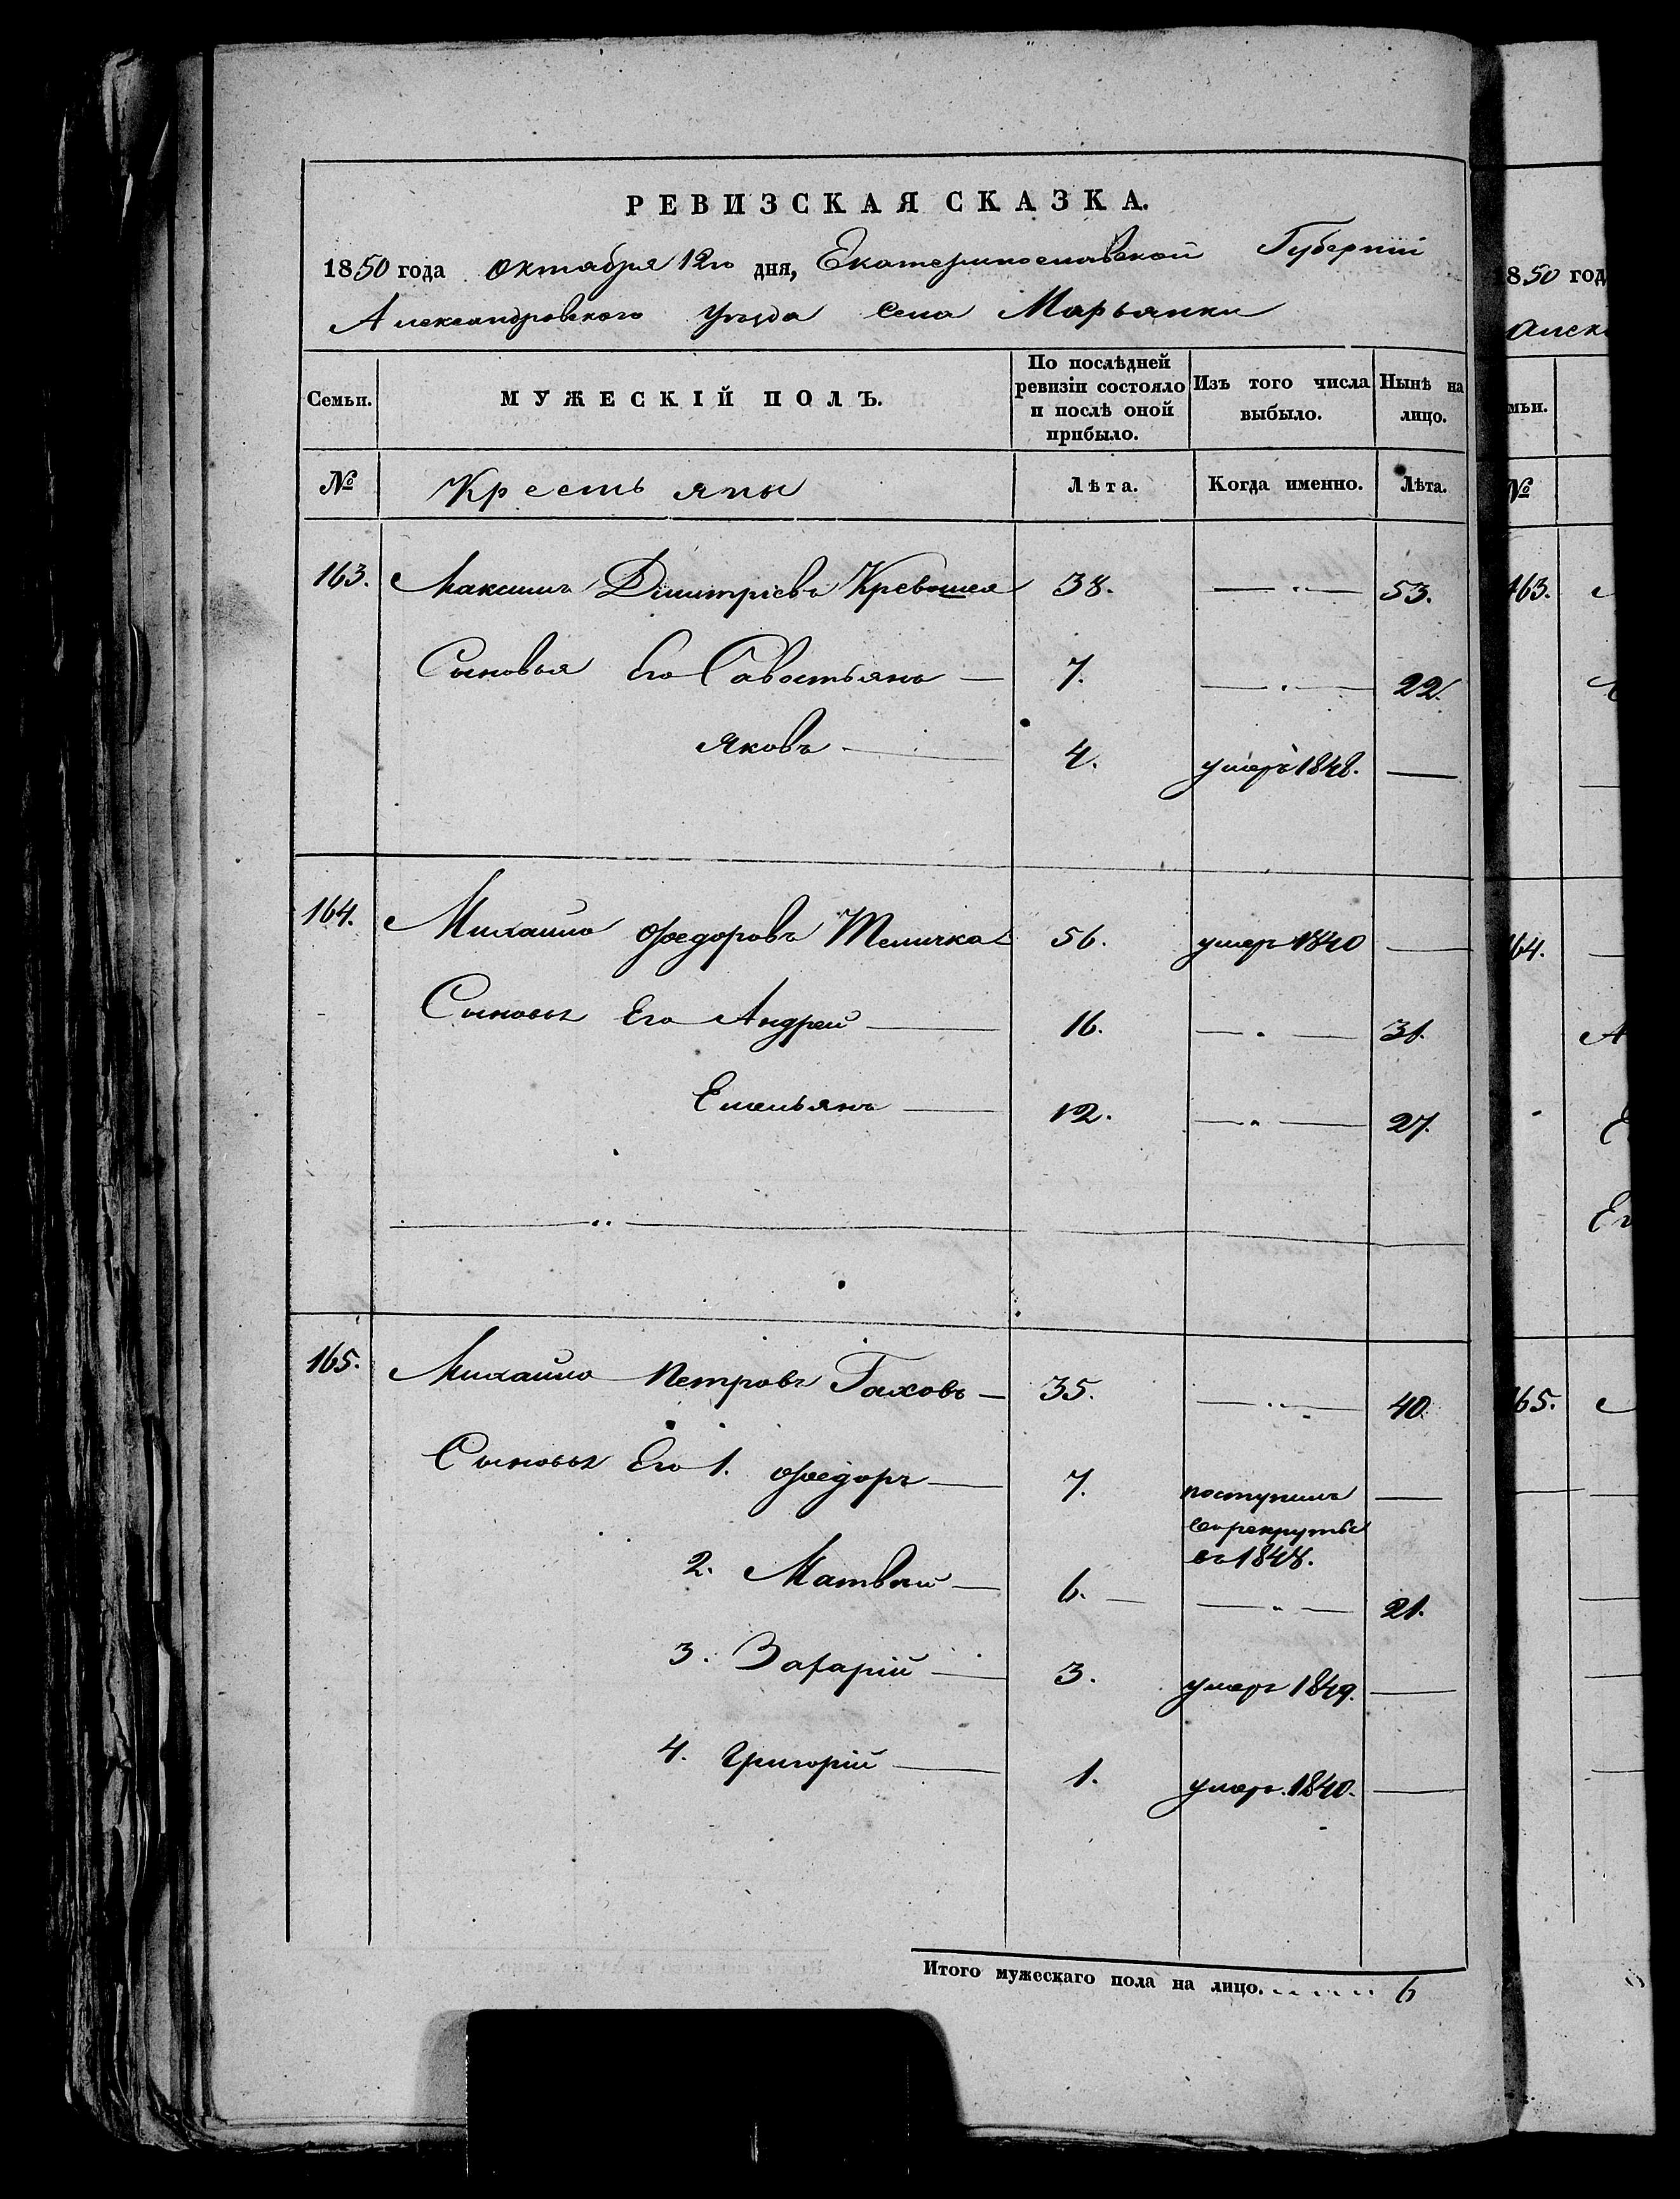 РЕВИЗСКАЯ СКАЗКА.
1850 года октября 12го дня, Екатеринославской Губерніи
Александровскаго уѣзда села Марьянки
Семьи. МУЖЕСКІЙ ПОЛЪ. По послѣдней ревизіи состояло и послѣ оной прибыло. Изъ того числа выбыло. Нынѣ на лицо.
№ Крестьяны Лѣта. Когда именно. Лѣта.
163. Максимъ Димитріевъ Кревошея 38. — " — 53.
Сыновья Его Савостьянъ — 7. — " — 22.
Яковъ — 4. умеръ 1848. —
164. Михайло Федоровъ Теличка 56. умеръ 1840 —
Сыновья Его Андрей — 16. — " — 31.
Емельянъ — 12. — " — 27.
165. Михайло Петровъ Гаховъ — 35. — " — 40
Сыновья Его 1. Федоръ — 7. поступилъ —
въ рекруты
въ 1848.
2. Матвѣй — 6. — " — 21.
3. Захарій — 3. умеръ 1849. —
4. Григорій — 1. умеръ. 1840. —
Итого мужескаго пола на лицо. 6
1850 год
Алек
мьи.
№
163.
164.
А
Е
Ег
165.